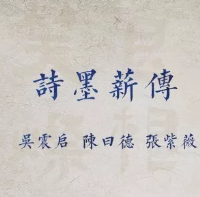 詩墨薪傳
吳震启 陳曰德 張紫薇